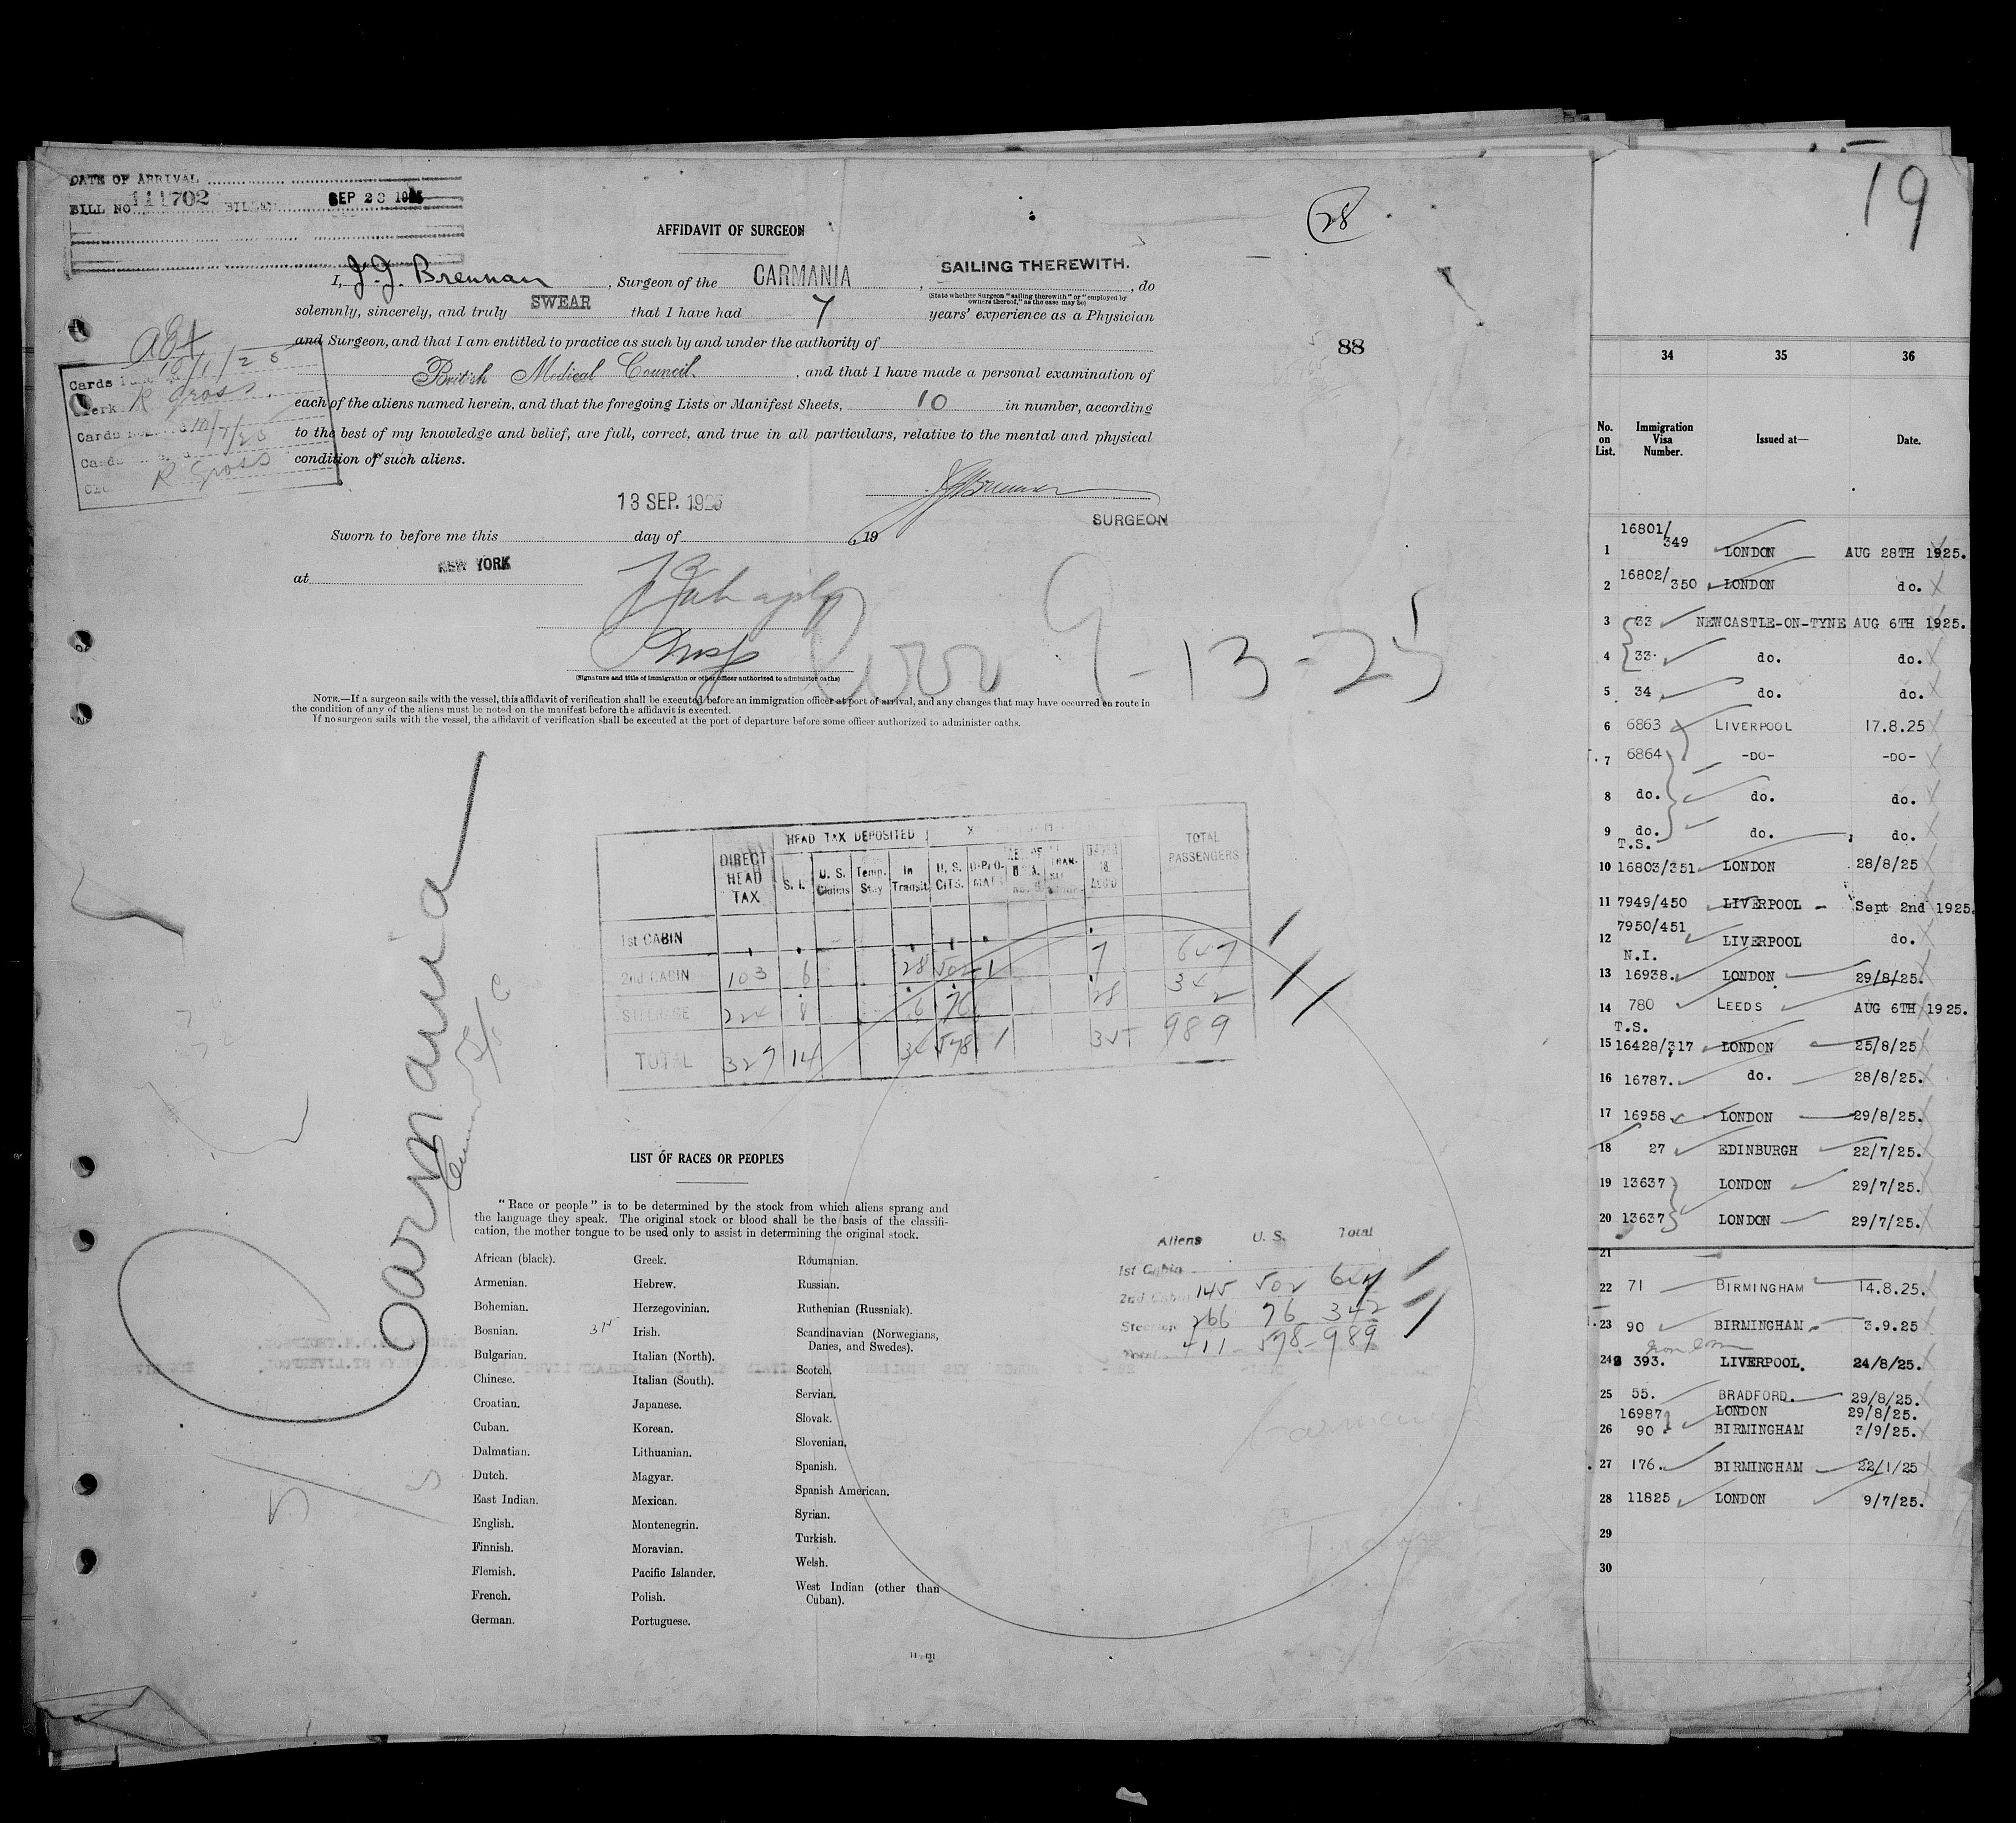 DATE OF ARRIVAL
BILL NO. 111702 BILLED SEP 23 1925
AFFIDAVIT OF SURGEON
28
19
I, J. J. Brennan, Surgeon of the CARMANIA, SAILING THEREWITH., do
(State whether Surgeon "sailing therewith" or "employed by
owners thereof," as the case may be)
solemnly, sincerely, and truly SWEAR that I have had 7 years' experience as a Physician
and Surgeon, and that I am entitled to practice as such by and under the authority of
British Medical Council., and that I have made a personal examination of
each of the aliens named herein, and that the foregoing Lists or Manifest Sheets, 10 in number, according
to the best of my knowledge and belief, are full, correct, and true in all particulars, relative to the mental and physical
condition of such aliens.
88
Cards
R Gross
Cards
R Gross
13 SEP. 1925
SURGEON
Sworn to before me this day of , 19
at NEW YORK
9-13-25
(Signature and title of immigration or other officer authorized to administer oaths)
NOTE.—If a surgeon sails with the vessel, this affidavit of verification shall be executed before an immigration officer at port of arrival, and any changes that may have occurred en route in
the condition of any of the aliens must be noted on the manifest before the affidavit is executed.
If no surgeon sails with the vessel, the affidavit of verification shall be executed at the port of departure before some officer authorized to administer oaths.
Carmania
HEAD TAX DEPOSITED
DIRECT HEAD TAX S. I. U. S. Claims Temp. Stay In Transit U. S. CITS. TOTAL PASSENGERS
1st CABIN
2nd CABIN 103 6 28 502 1 7 647
STEERAGE 224 8 6 76 28 342
TOTAL 327 14 34 578 1 35 989
LIST OF RACES OR PEOPLES
"Race or people" is to be determined by the stock from which aliens sprang and
the language they speak. The original stock or blood shall be the basis of the classifi-
cation, the mother tongue to be used only to assist in determining the original stock.
African (black).
Armenian.
Bohemian.
Bosnian.
Bulgarian.
Chinese.
Croatian.
Cuban.
Dalmatian.
Dutch.
East Indian.
English.
Finnish.
Flemish.
French.
German.
Greek.
Hebrew.
Herzegovinian.
Irish.
Italian (North).
Italian (South).
Japanese.
Korean.
Lithuanian.
Magyar.
Mexican.
Montenegrin.
Moravian.
Pacific Islander.
Polish.
Portuguese.
Roumanian.
Russian.
Ruthenian (Russniak).
Scandinavian (Norwegians,
Danes, and Swedes).
Scotch.
Servian.
Slovak.
Slovenian.
Spanish.
Spanish American.
Syrian.
Turkish.
Welsh.
West Indian (other than
Cuban).
Aliens U. S. Total
1st Cabin
2nd Cabin 145 502 647
Steerage 266 76 342
Total 411 578 989
34 35 36
No. on List. Immigration Visa Number. Issued at— Date.
1 16801/349 LONDON AUG 28TH 1925.
2 16802/350 LONDON do.
3 33 NEWCASTLE-ON-TYNE AUG 6TH 1925.
4 33. do. do.
5 34 do. do.
6 6863 LIVERPOOL 17.8.25
7 6864 -DO- -DO-
8 do. do. do.
9 do. do. do.
T.S.
10 16803/351 LONDON 28/8/25
11 7949/450 LIVERPOOL Sept 2nd 1925.
12 7950/451 LIVERPOOL do.
N.I.
13 16938. LONDON 29/8/25.
14 780 LEEDS AUG 6TH 1925.
T.S.
15 16428/317 LONDON 25/8/25
16 16787. do. 28/8/25.
17 16958 LONDON 29/8/25.
18 27 EDINBURGH 22/7/25.
19 13637 LONDON 29/7/25.
20 13637 LONDON 29/7/25.
21
22 71 BIRMINGHAM 14.8.25.
23 90 BIRMINGHAM. 3.9.25
24 393. LIVERPOOL. 24/8/25.
25 55. BRADFORD. 29/8/25.
16987 LONDON 29/8/25.
26 90 BIRMINGHAM 3/9/25.
27 176. BIRMINGHAM 22/1/25
28 11825 LONDON 9/7/25.
29
30